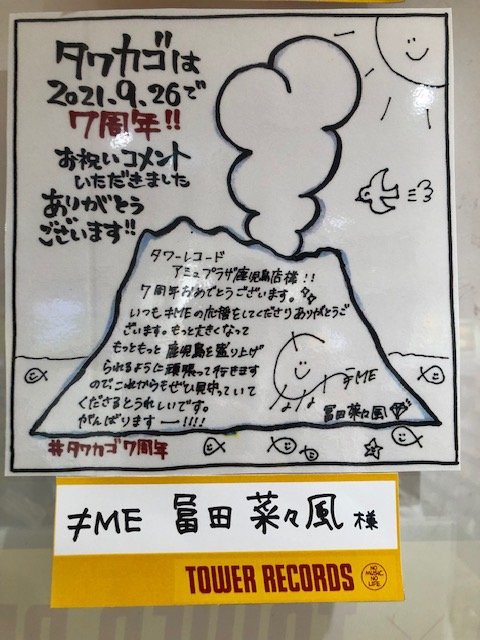 タワカゴは
2021.9.26で
7周年!!
お祝いコメント
いただきました
ありがとう
ございます!!
タワーレコード
アミュプラザ鹿児島店様!!
7周年おめでとうございます。
いつも≠MEの応援をしてくださりありがとうご
ざいます。もっと大きくなって
もっともっと鹿児島を盛り上げ
られるように頑張って行きます
ので、これからもぜひ見守っていて
くださるとうれしいです。
がんばりますー!!!!
≠ME
冨田菜々風
#タワカゴ7周年
≠ME 冨田 菜々風 様
TOWER RECORDS
NO MUSIC, NO LIFE.